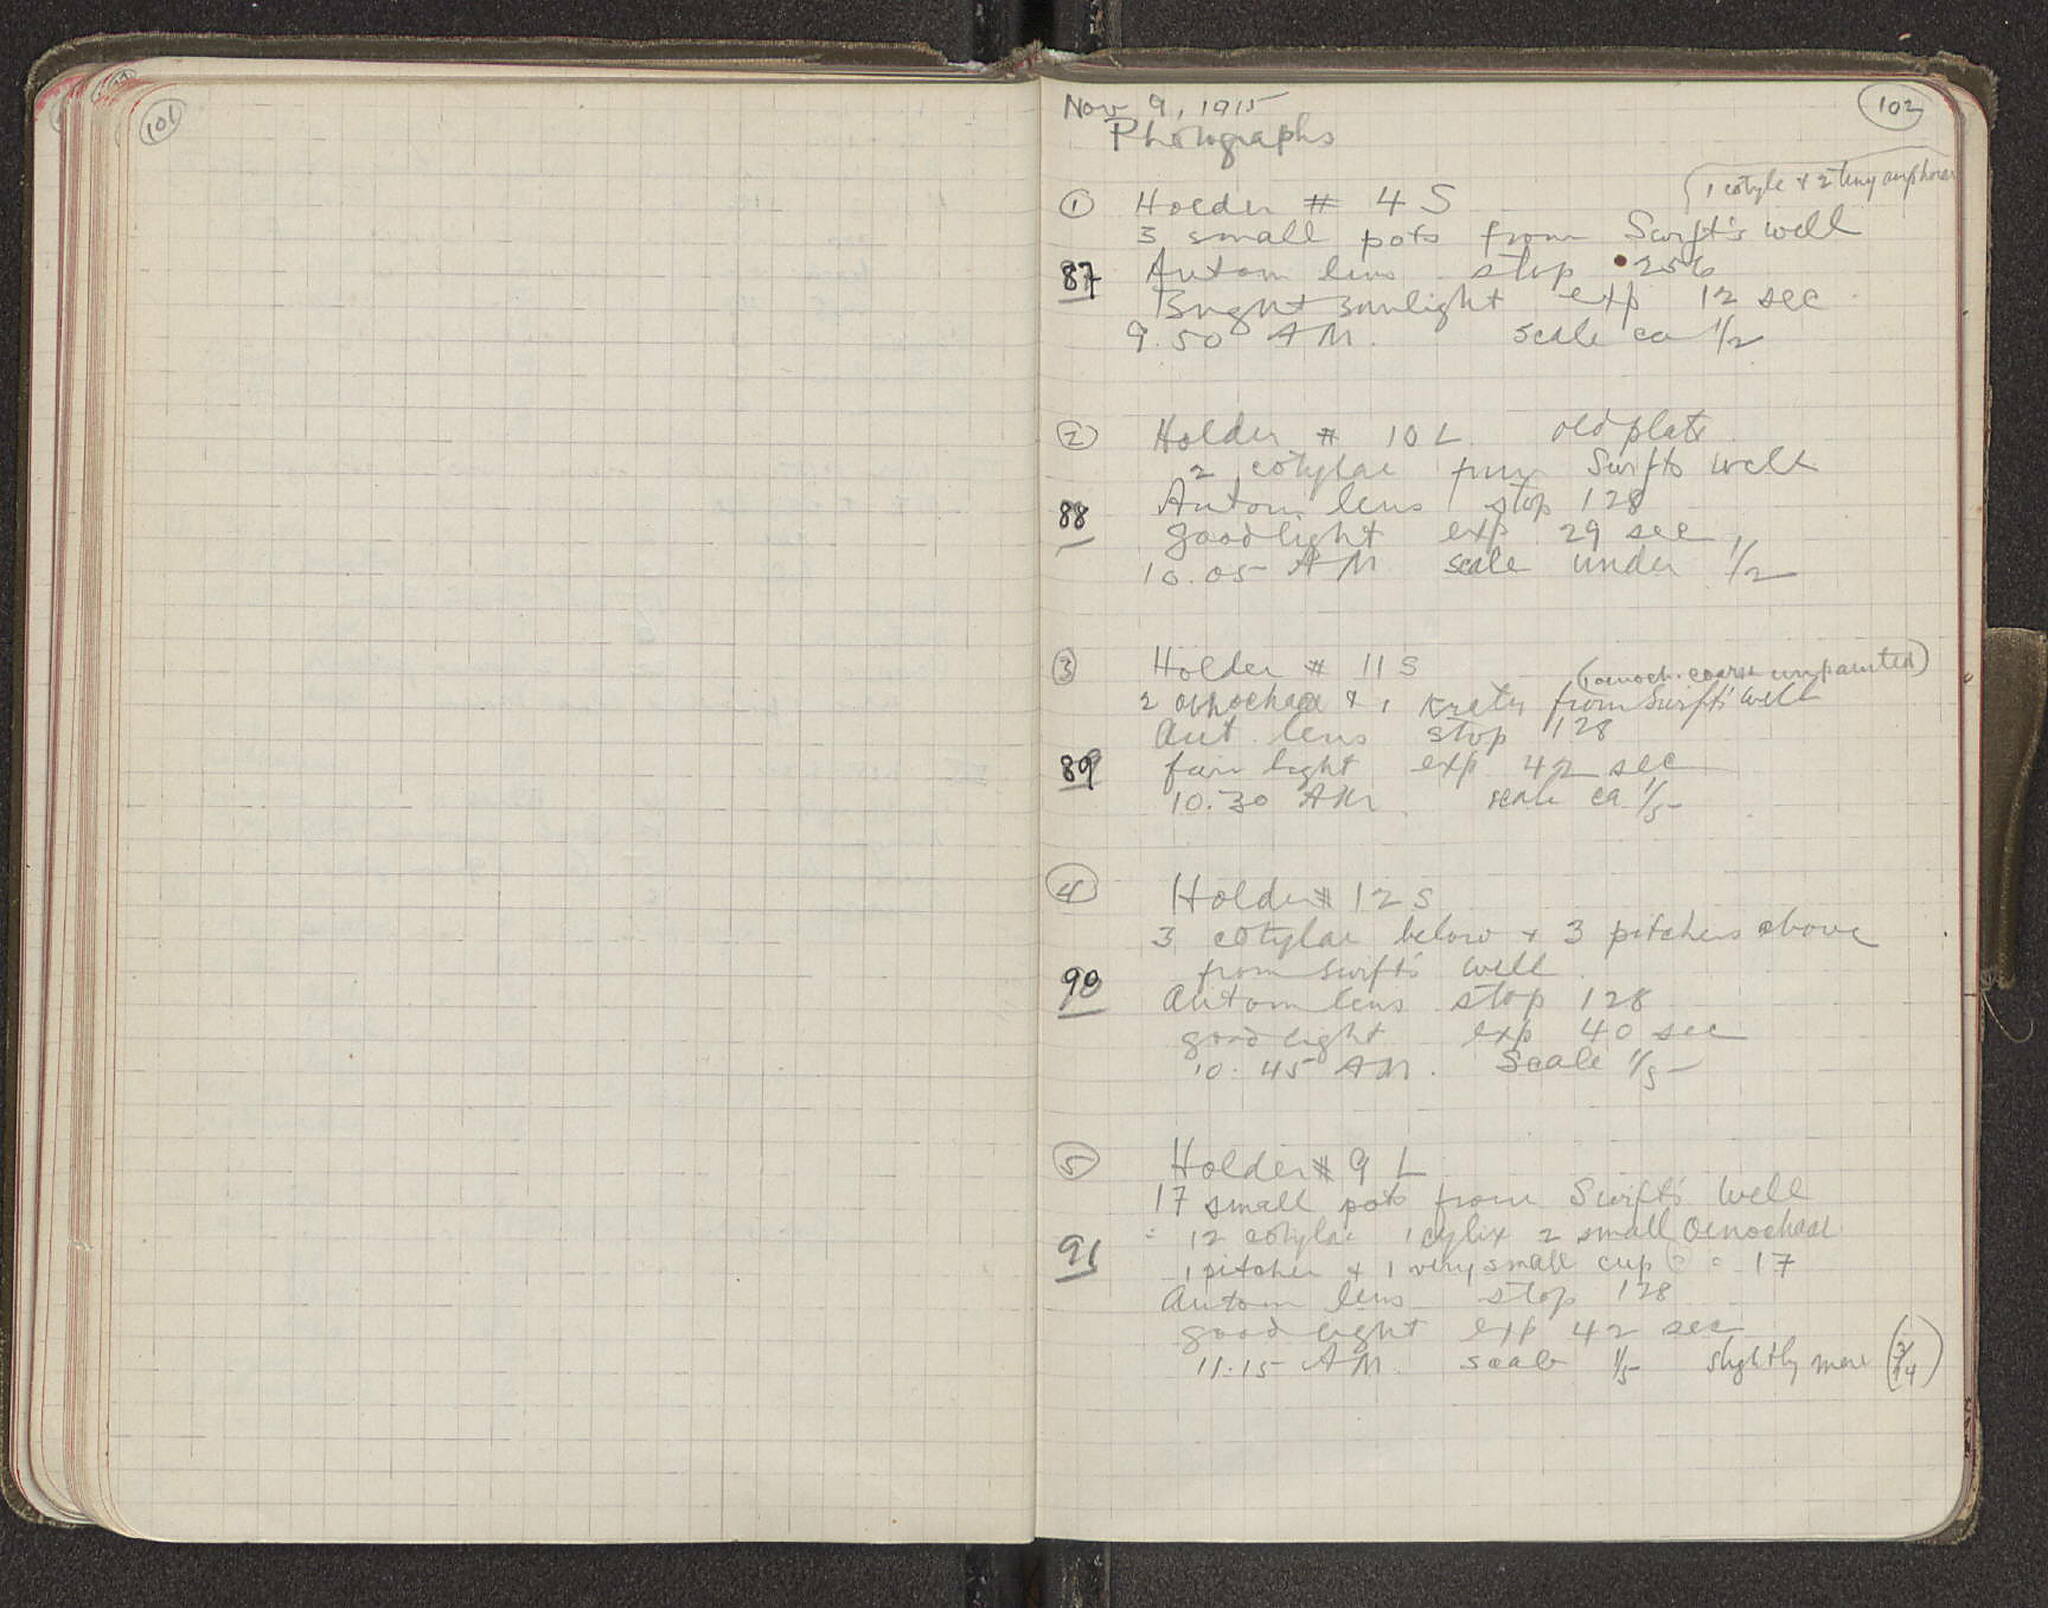 101
102
Nov 9, 1915
Photographs
(1 cotyle + 2 tiny amphorae
① Holder # 4 S
3 small pots from Swift's well
87 Autom lens stop 256
Bright sunlight exp 12 sec
9.50 AM. scale ca 1/2
② Holder # 10 L old plate
2 cotylae from Swifts well
88 Autom. lens stop 128
good light exp 29 sec
10.05 AM scale under 1/2
③ Holder # 11 S
(1 oenoch. coarse unpainted)
2 oinochoae & 1 Krater from Swift's well
Aut. lens stop 128
89 fair light exp 42 sec
10.30 AM. scale ca 1/5
④ Holder # 12 S
3 cotylae below + 3 pitchers above
from Swift's well
90 Autom lens stop 128
good light exp 40 sec
10.45 AM. Scale 1/5
⑤ Holder # 9 L
17 small pots from Swift's well
= 12 cotylae 1 cylix 2 small Oenochoae
91 1 pitcher & 1 very small cup = 17
Autom lens stop 128
good light exp 42 sec
11.15 AM. scale 1/5 slightly more